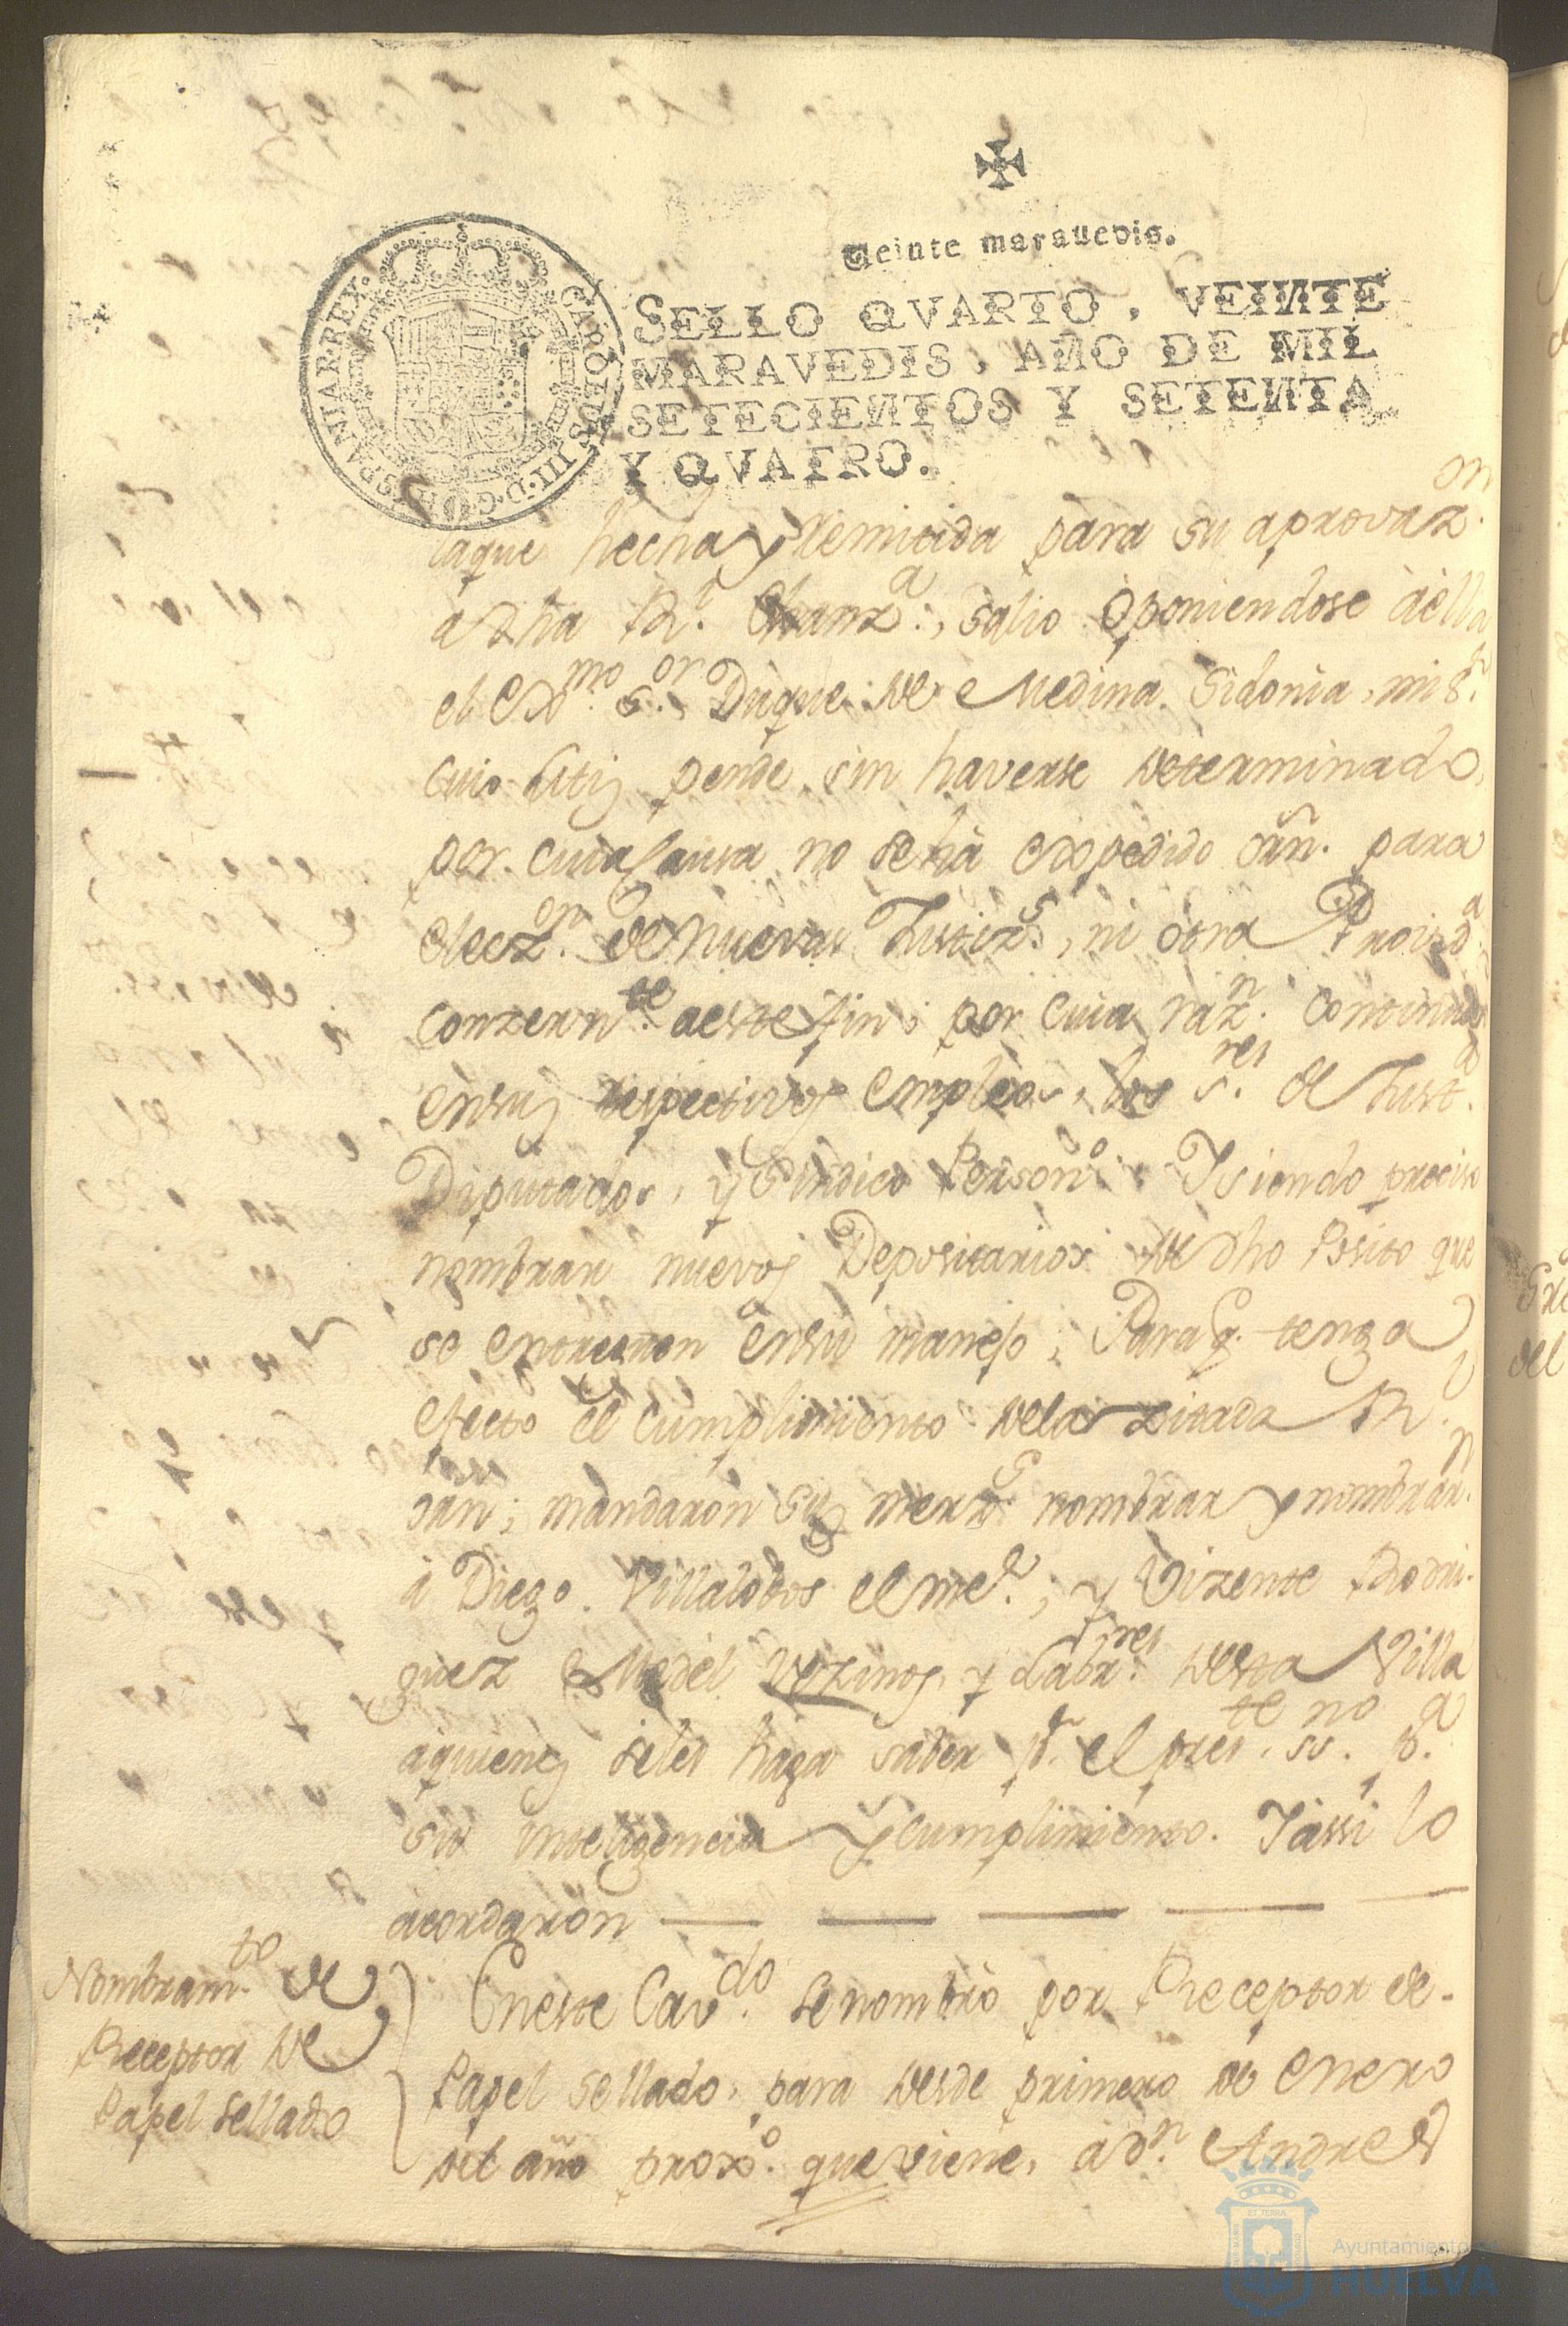 Veinte marauedis.
CAROLUS III D G HISPANIAR REX
SELLO QVARTO, VEINTE
MARAVEDIS, AÑO DE MIL
SETECIENTOS Y SETENTA
Y QVATRO.
la que hecha y Remitida para su aprovazon.
a dha Rl. Chanza., Salio oponiendose a ella
el Exmo. Sor. Duque de Medina Sidonia, mi Sr.
cuio Litis pende, sin haverse determinado,
por cuia Causa no se há expedido orn. para
eleczon. de Nuevas Justizs., ni otra Provida.
conzernte. a este fin; por cuia razn. continuan
en sus respectivos empleos, los Sres. de Justa.
Diputados, y Sindico Persono. Y siendo preciso
nombrar nuevos Depositarios de dho Posito que
se entreguen en su manejo; Para q. tenga
efecto el cumplimiento de la zitada Rl.
orn; mandaron sus merzs. nombrar y nombran.
á Diego Villalobos el mer., y Vizente Rodri-
guez Medel Vezinos, y Labrres. desta Villa
a quienes seles haga saber pr. el preste. ssno. pa.
su inteligencia y cumplimiento. Y assi lo
acordaron
Nombramto. de
Receptor de
Papel Sellado
En este Cavdo. se nombró por Receptor de
Papel Sellado, para desde primero de Enero
del año proxo. que viene, á Dn. Andres
Ayuntamiento
HUELVA